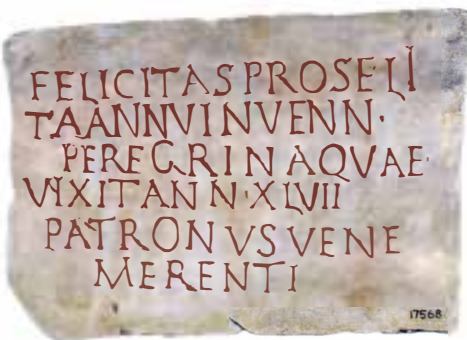 FELICITAS PROSELI
TA ANN VI NVENN·
PEREGRINA QVAE·
VIXIT ANN·XLVII
PATRONVS VENE
MERENTI
17568